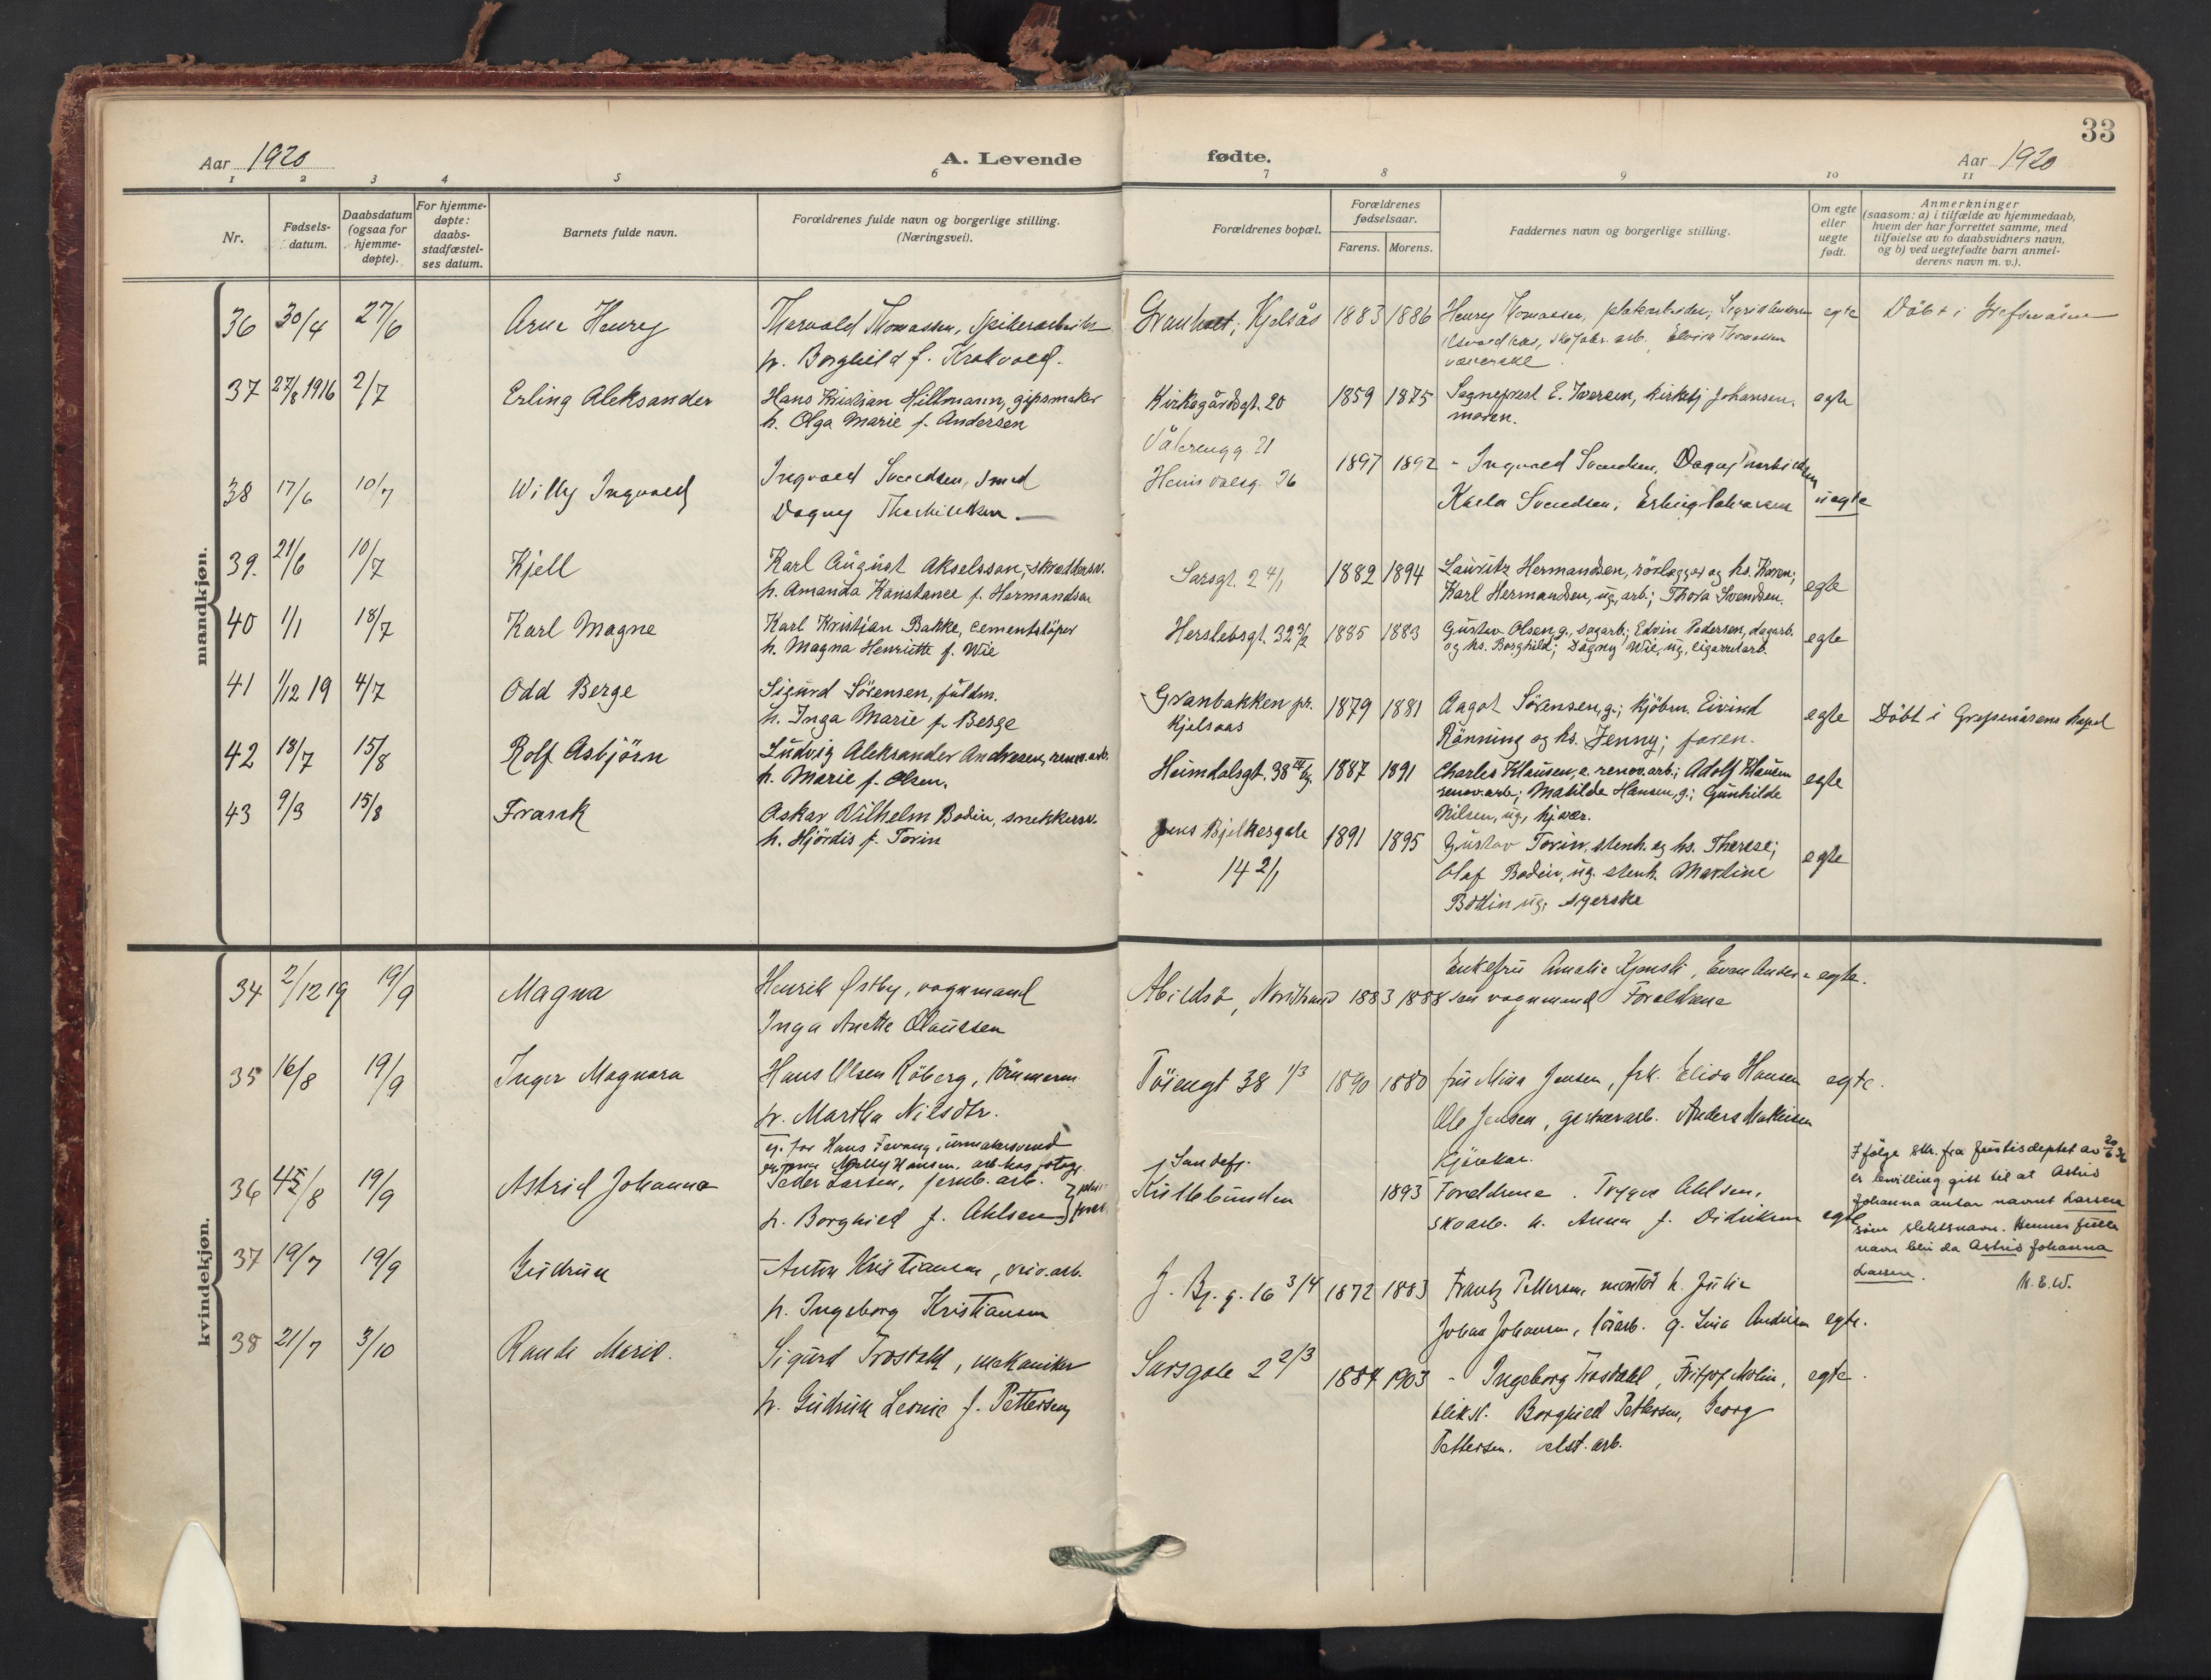 33
Aar 1920
A. Levende
fødte.
Aar 1920
1 2 3 4 5 6 7 8 9 10 11
Nr.
Fødsels-
datum.
Daabsdatum
(ogsaa for
hjemme-
døpte).
For hjemme-
døpte:
daabs-
stadfæstel-
ses datum.
Barnets fulde navn.
Forældrenes fulde navn og borgerlige stilling.
(Næringsvei).
Forældrenes bopæl.
Forældrenes
fødselsaar.
Farens. Morens.
Faddernes navn og borgerlige stilling.
Om egte
eller
uegte
født.
Anmerkninger
(saasom: a) i tilfælde av hjemmedaab,
hvem der har forrettet samme, med
tilføielse av to daabsvidners navn,
og b) ved uegtefødte barn anmel-
derens navn m. v.).
mandkjøn.
36 30/4 27/6 Arne Henry Thorvald Thomassen,
h. Borghild f. Krokvold.
Kjelsås 1883 1886 Henry Thomassen, Sigrid
Elvira Thomassen
egte Döbt i
37 27/8 1916 2/7 Erling Aleksander Hans Kristian Hillmann, gipsmaker
h. Olga Marie f. Andersen
Kirkegårdsgt. 20 1859 1875 Sogneprest E. Iversen, kirketj Johansen,
moren.
egte
38 17/6 10/7 Willy Ingvald Ingvald Svendsen, smed
Dagny
Vålerengg. 21
26
1897 1892 - Ingvald Svendsen, Dagny
Karla Svendsen, Erling
uegte
39. 21/6 10/7 Kjell Karl August Akselsson, skræddersv.
h. Amanda Konstance f. Hermandsen
Sarsgt. 2 4/1 1882 1894 Lauritz Hermandsen, rörlegger og hs. Karen;
Karl Hermandsen, ug, arb.; Thora Svendsen.
egte
40 1/1 18/7 Karl Magne Karl Kristian Bakke, cementstöper
h. Magna Henriette f. Wie
Herslebsgt. 32 3/2 1885 1883 Gustav Olsen, g., sagarb.; Edvin Pedersen, dagarb.
og hs. Borghild; Dagny Wie, ug, cigarretarb.
egte
41 1/12 19 4/7 Odd Berge Sigurd Sörensen, fuldm.
h. Inga Marie f. Berge
Granbakken pr.
Kjelsaas
1879 1881 Aagot Sörensen, g.; kjöbm. Eivind
Rönning og hs. Jenny; faren.
egte Döbt i Grefsenåsens kapel
42 18/7 15/8 Rolf Asbjörn Ludvig Aleksander Andresen, renov.arb.
h. Marie f. Olsen.
Heimdalsgt. 38 1887 1891 Charles Klausen, e. renov.arb.; Adolf Klausen
renov.arb; Matilde Hansen, g.; Gunhilde
Nilsen, ug,
egte
43 9/3 15/8 Frank Oskar Vilhelm Bodin, snekkersv.
h. Hjördis f. Torin
Jens Bjelkesgate
14 2/1
1891 1895 Gustav Torin, stenh. og hs. Therese;
Olaf Bodin, ug. stenh. Martine
Bodin ug; syerske
egte
kvindekjøn.
34 2/12 19 19/9 Magna Henrik Østby, vognmand
Inga Anette Olaussen
Abildsö, Nordstrand 1883 1888 Enkefru Amalie Evan Ander-
sen vognmand Forældrene
egte.
35 16/8 19/9 Inger Magnara Hans Olsen Röberg, tömmerm.
h. Martha Nilsdtr.
Töiengt 38 1/3 1890 1880 fru Mina Jensen, frk. Elida Hansen
Ole Jensen, Anders
egte.
eg. for Hans
36 19/9 Astrid Johanna Peder Larsen, jernb. arb.
h. Borghild f. Ahlsen
1893 Forældrene. Trygve Ahlsen,
skoarb. h. Anna f. Didriksen
egte
I følge skr. fra Justisdeptet av 20/6 36
er bevilling gitt til at Astrid
Johanna antar navnet Larsen
som slektsnavn. Hennes fulle
navn blir da Astrid Johanna
Larsen.
37 19/7 19/9 Gudrun Anton Kristiansen,
h. Ingeborg Kristiansen
J. Bj. g. 16 3/4 1872 1883 Frantz Pettersen, montör h. Julie
Johan Johansen, g. Lina Andersen
egte.
38 21/7 3/10 Randi Marie. Sigurd Trosdahl, mekaniker
h. Gudrun Leonie f. Pettersen
Sarsgate 2 2/3 1884 1903 - Ingeborg Trosdahl, Fritjof Molin,
Borghild Pettersen, Georg
Pettersen.
egte.